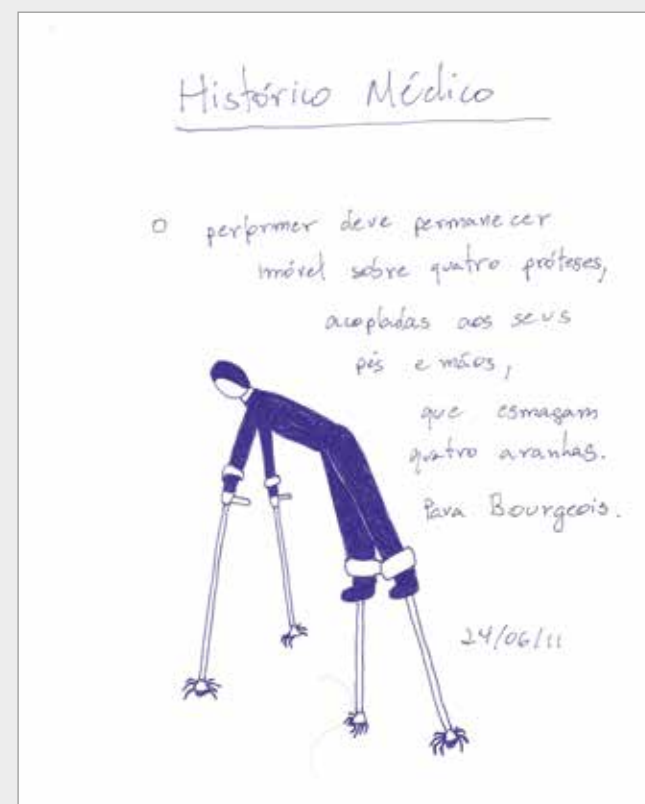 Histórico Médico
O performer deve permanecer
imóvel sobre quatro próteses,
acopladas aos seus
pés e mãos,
que esmagam
quatro aranhas.
Para Bourgeois.
24/06/11